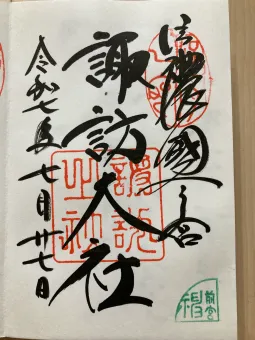 信濃國一之宮
諏訪大社
令和七年七月廿七日
諏訪
大社
前宮